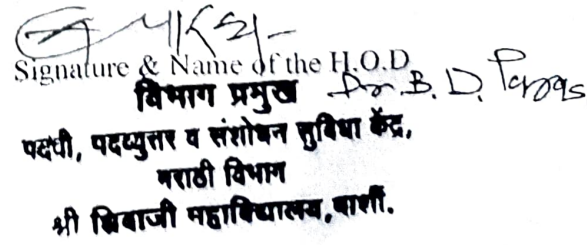 Signature & Name of the H.O.D
Dr. B. D.
विभाग प्रमुख
पदवी, पदव्युत्तर व संशोधन सुविधा केंद्र,
मराठी विभाग
श्री शिवाजी महाविद्यालय, बार्शी.